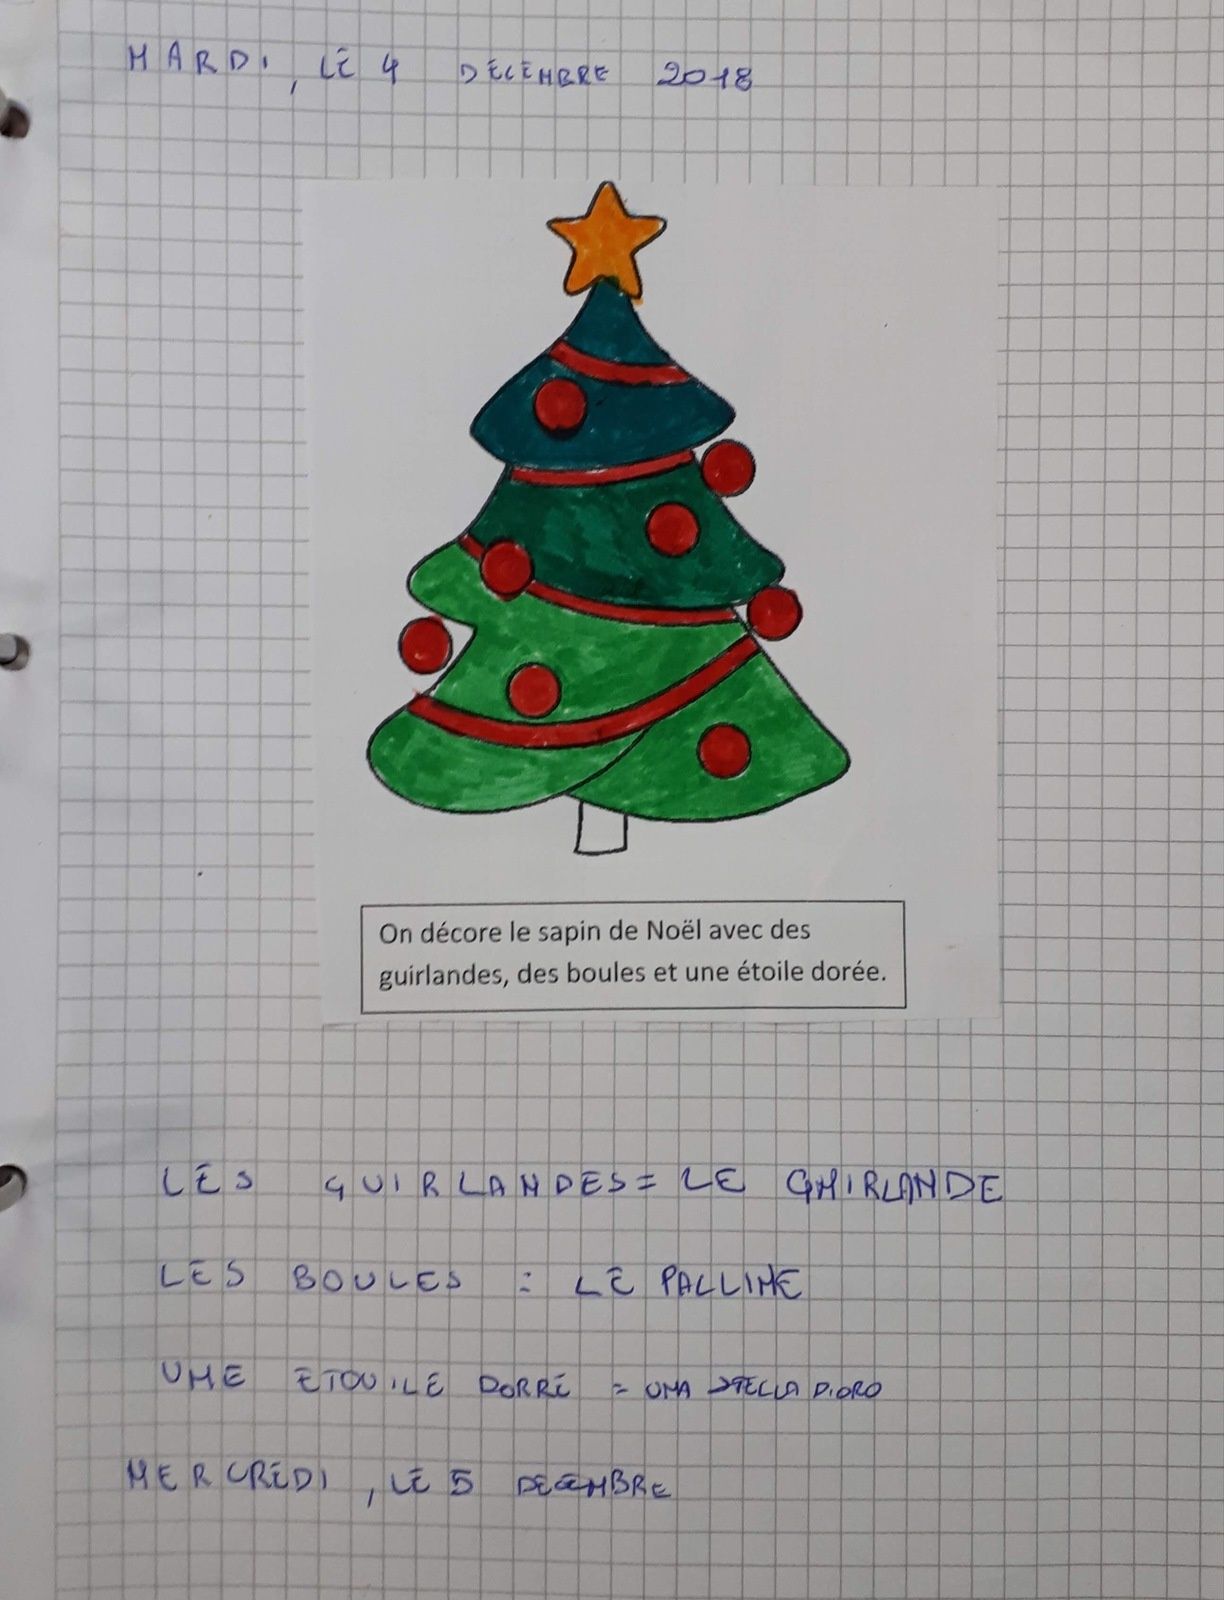 MARDI, LE 4 DECEMBRE 2018
On décore le sapin de Noël avec des
guirlandes, des boules et une étoile dorée.
LES GUIRLANDES = LE GHIRLANDE
LES BOULES = LE PALLINE
UNE ETOUILE DORRE = UNA STELLA D'ORO
MERCREDI, LE 5 DECEMBRE